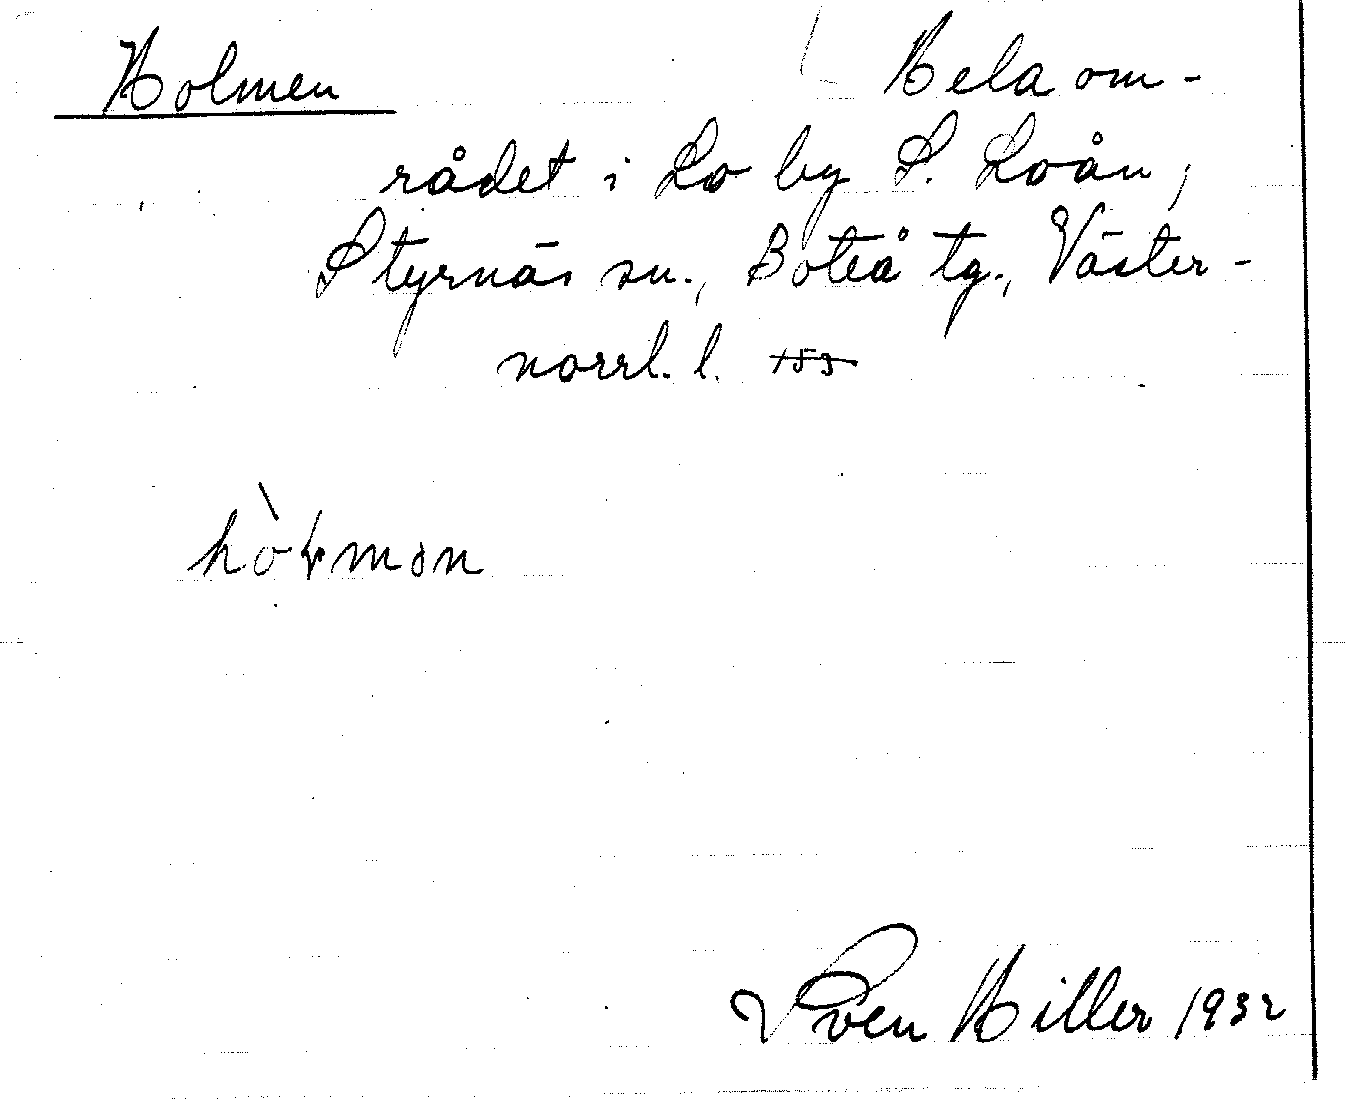 Holmen
Hela om-
rådet i Lo by S. Loån,
Styrnäs sn., Boteå tg., Väster-
norrl. l.
Sven Hiller 1932